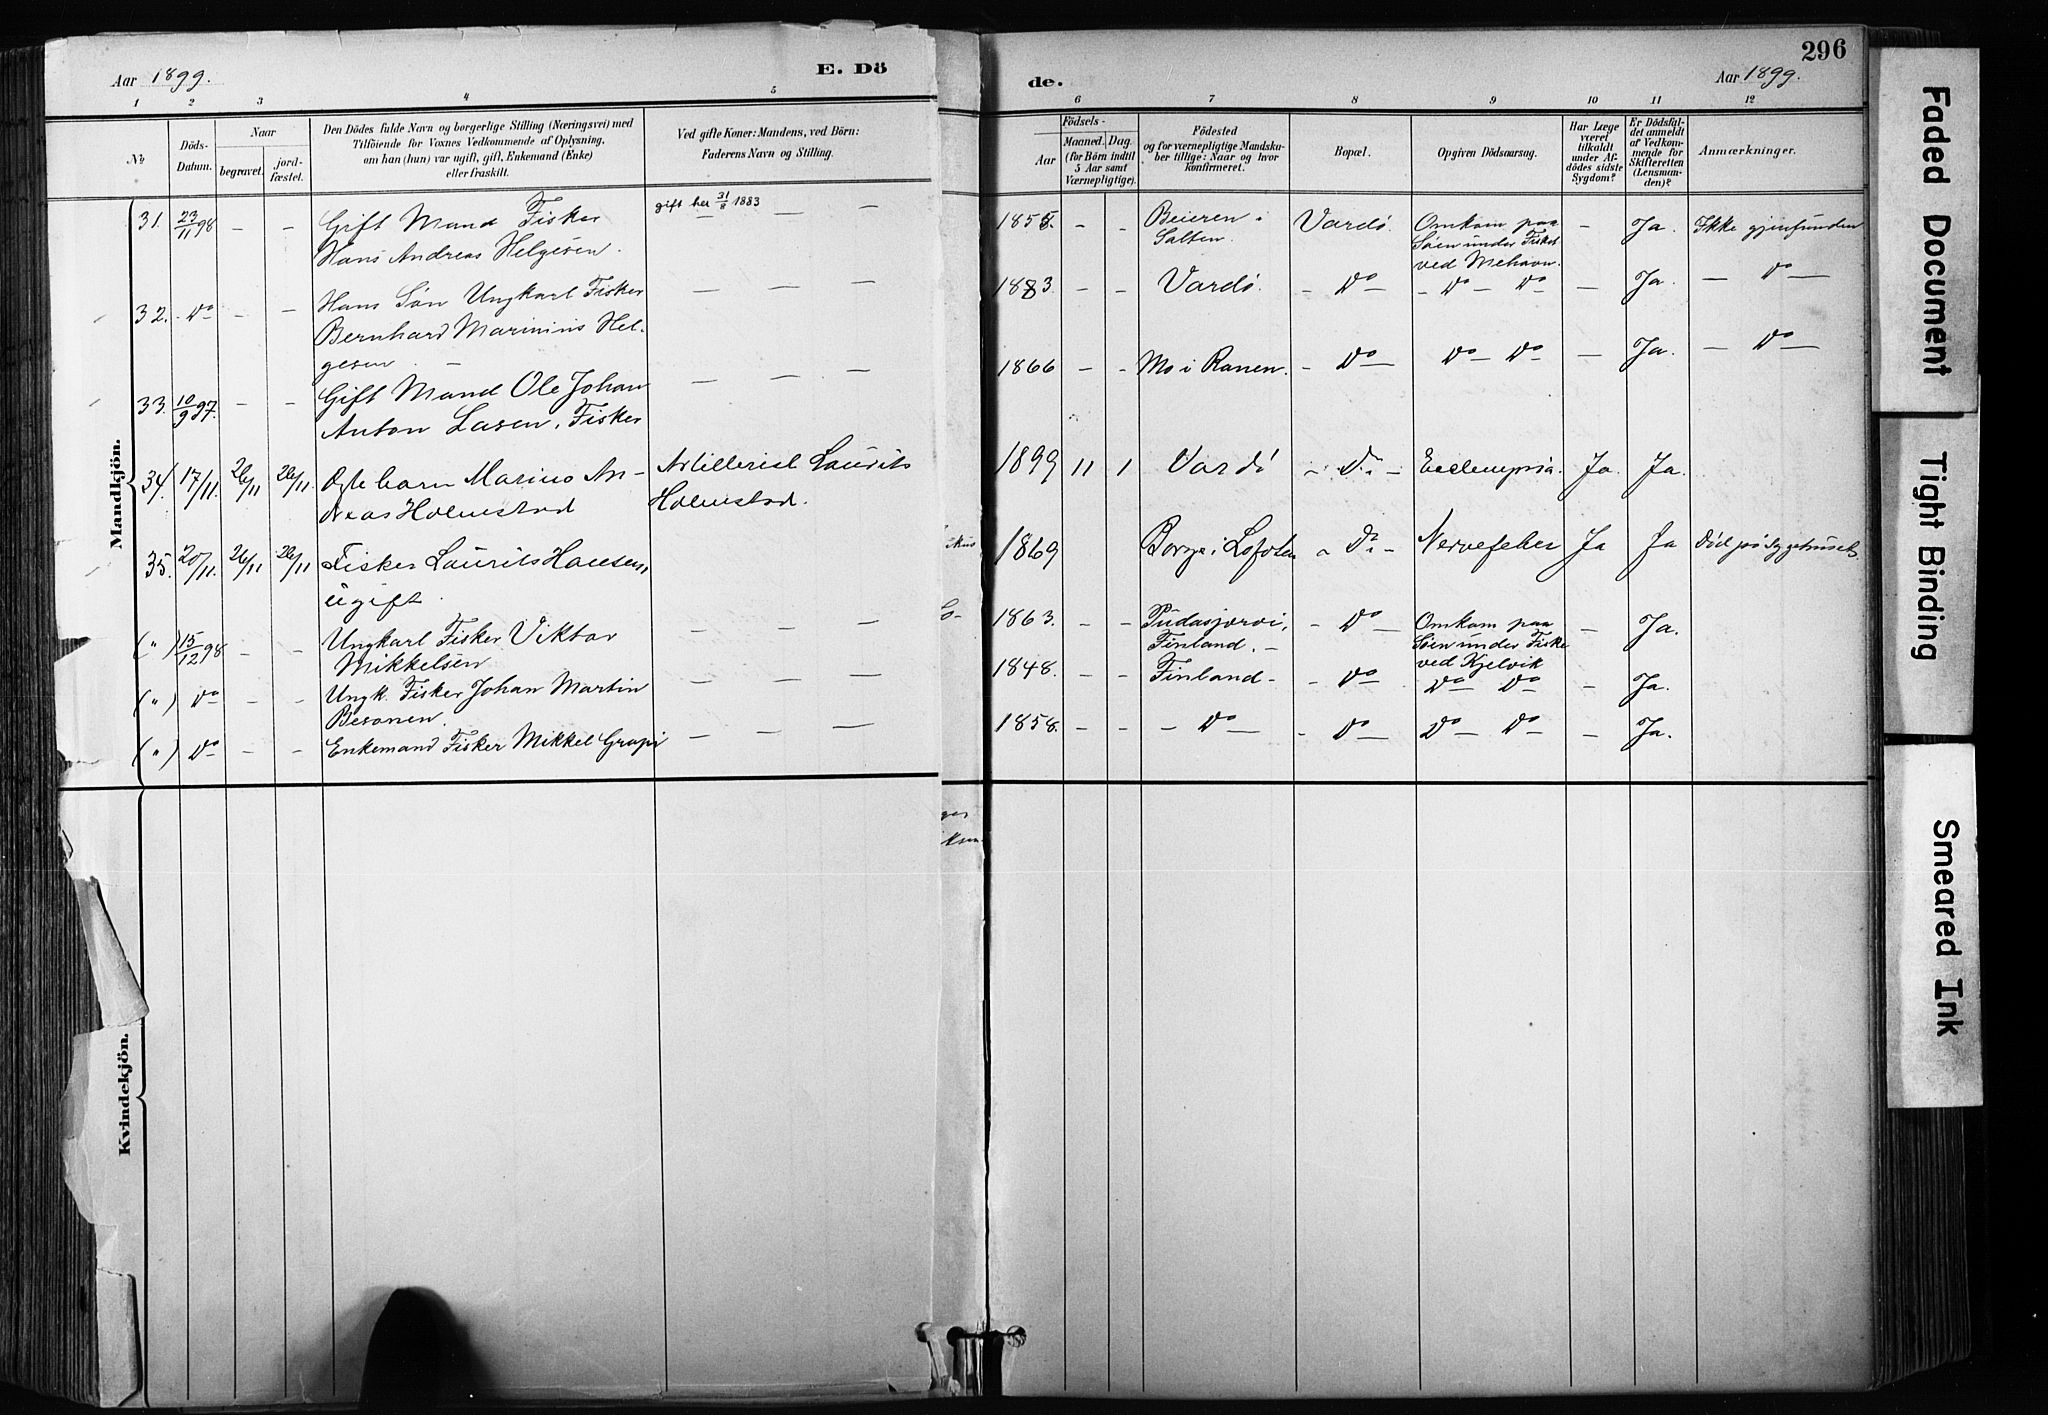 Aar 1899.
E. Dö
de.
Aar 1899.
296
1 2 3 4 5
6 7 8 9 10 11 12
No
Döds-Datum.
Naar
begravet.
jord-fæstet.
Den Dödes fulde Navn og borgerlige Stilling (Næringsvei) med
Tilföiende for Voxnes Vedkommende af Oplysning,
om han (hun) var ugift, gift, Enkemand (Enke)
eller fraskilt.
Ved gifte Koner: Mandens, ved Börn:
Faderens Navn og Stilling.
Födsels-
Aar
Maaned. Dag.
(for Börn indtil
5 Aar samt
Værnepligtige).
Födested
og for værnepligtige Mandska-
ber tillige: Naar og hvor
konfirmeret.
Bopæl.
Opgiven Dödsaarsag.
Har Læge
været
tilkaldt
under Af-
dödes sidste
Sygdom?
Er Dödsfal-
det anmeldt
af Vedkom-
mende for
Skifteretten
(Lensman-
den)?
Anmærkninger.
Mandkjön.
31. 23/11 98 - - Gift Mand Fisker
Hans Andreas Helgesen.
gift her 31/8 1883
— — —
1855. - - Beieren i
Salten.
Vardö.
Omkom paa
Söen under Fisket
ved Mehavn.
- Ja. Ikke gjenfunden
32. Do - - Hans Sön Ungkarl Fisker
Bernhard Marinius Hel-
gesen —
— — —
1883. - - Vardö. - Do - Do Do - Ja. - Do -
33. 10/9 97. - - Gift Mand Ole Johan
Anton Lasen, Fisker
— — —
1866 - - Mo i Ranen. - Do Do Do - Ja. - Do -
34. 17/11. 26/11 26/11. Ægte barn Marino An-
dreas Holmstad
Artillerist Laurits
Holmstad.
1899 11 1 Vardö - Do - Eclempsia. Ja. Ja.
35. 20/11. 26/11 26/11 Fisker Laurits Hansen,
ugift.
1869 Borge i Lofoten - Do - Nervefeber Ja Ja Död på Sygehuset.
(") 15/12 98 - - Ungkarl Fisker Viktor
Mikkelsen
— — —
1863. - - Pudasjærvi,
Finland. -
- Do -
Omkom paa
Söen under Fiske
ved Kjelvik
- Ja.
(") Do - - Ungk. Fisker Johan Martin
Besonen.
— — —
1848. - - Finland - - Do Do Do - Ja.
(") Do - - Enkemand Fisker Mikkel Grapi
— — —
1858. - - - Do - Do Do Do - Ja.
Kvindekjön.
Faded Document
Tight Binding
Smeared Ink